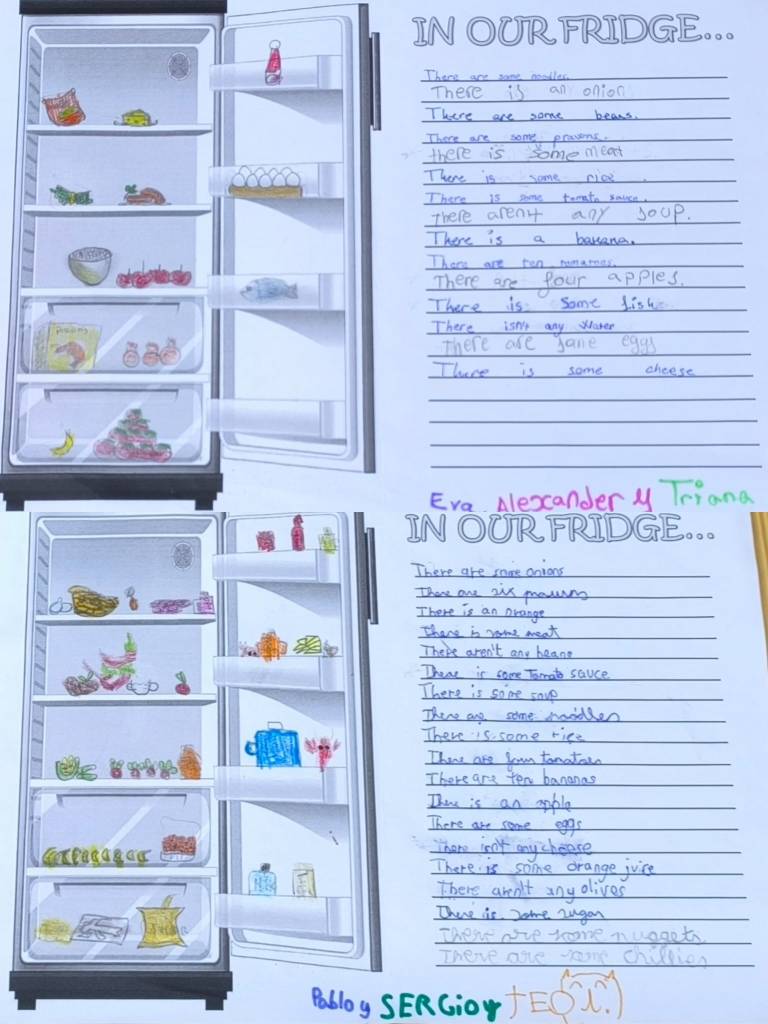 IN OUR FRIDGE...
There are some noodles.
There is an onion
There are some beans.
There are some prawns.
there is some meat
There is some rice
There is some tomato sauce.
There aren't any soup.
There is a banana.
There are ten tomatoes.
There are four apples.
There is some fish
There isn't any water
There are some eggs
There is some cheese
Eva Alexander y Triana
IN OUR FRIDGE...
There are some onions
There are six prawns
There is an orange
There is some meat
There aren't any beans
There is some Tomato sauce
There is some soup
There are some noodles
There is some rice
There are four tomatoes
There are ten bananas
There is an apple
There are some eggs
There isn't any cheese
There is some orange juice
There aren't any olives
There is some sugar
There are some nuggets
There are some chillies
Pablo y SERGIO y